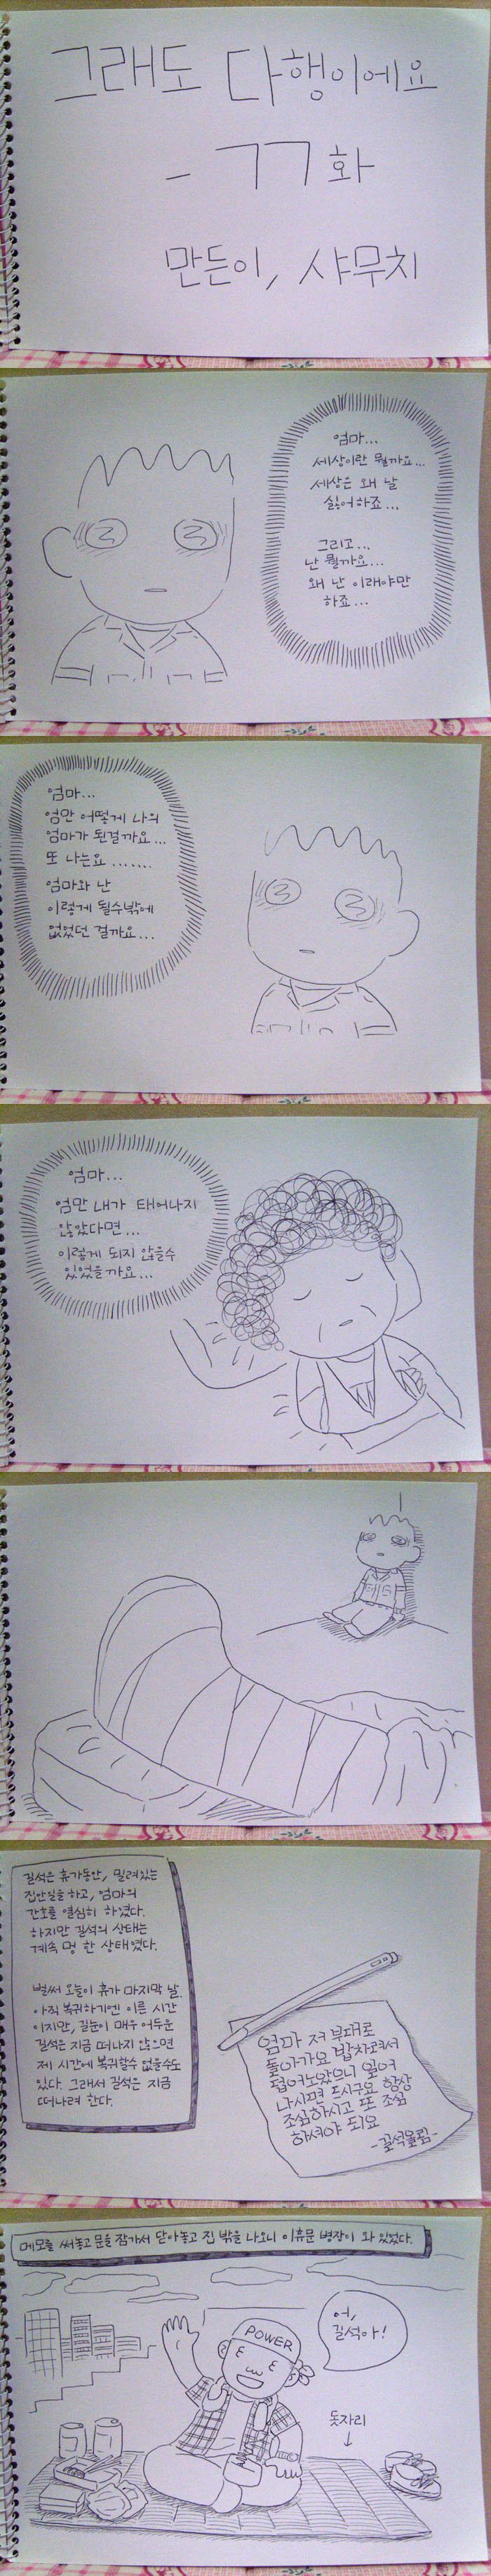 그래도 다행이에요
- 77화
만든이, 샤무치
엄마...
세상이란 뭘까요...
세상은 왜 날
싫어하죠...
그리고...
난 뭘까요...
왜 난 이래야만
하죠...
엄마...
엄만 어떻게 나의
엄마가 된걸까요...
또 나는요.......
엄마와 난
이렇게 될수밖에
없었던 걸까요...
엄마...
엄만 내가 태어나지
않았다면...
이렇게 되지 않을수
있었을까요...
길석은 휴가동안, 밀려있는
집안일을 하고, 엄마의
간호를 열심히 하였다.
하지만 길석의 상태는
계속 멍 한 상태였다.
벌써 오늘이 휴가 마지막 날.
아직 복귀하기엔 이른 시간
이지만, 길눈이 매우 어두운
길석은 지금 떠나지 않으면
제 시간에 복귀할수 없을수도
있다. 그래서 길석은 지금
떠나려 한다.
엄마 저 부대로
돌아가요 밥차려서
덮어놓았으니 일어
나시면 드시구요 항상
조심하시고 또 조심
하셔야 되요
-길석올림-
메모를 써놓고 문을 잠가서 닫아놓고 집 밖을 나오니 이휴문 병장이 와 있었다.
POWER
어,
길석아!
돗자리
↓